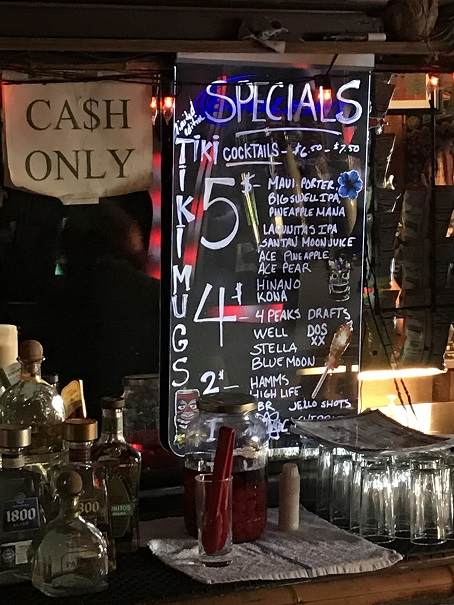 CA$H
ONLY
limited edition
SPECIALS
TIKI MUGS
TiKi COCKTAILS - $6.50 - $7.50
5$ - MAUI PORTER
BIG SWELL IPA
PINEAPPLE MANA
LAGUNITAS IPA
SANTAN MOONJUICE
ACE PINEAPPLE
ACE PEAR
HINANO
KONA
4$ 4 PEAKS DRAFTS
WELL DOS XX
STELLA
BLUE MOON
2$ - HAMMS
HIGH LIFE
JELLO SHOTS
1800
1800